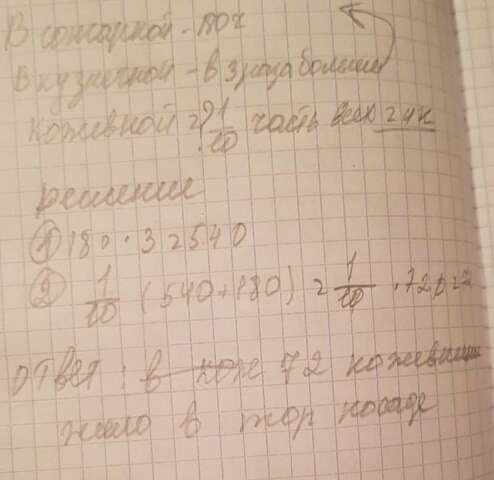 В гончарной - 180ч
В кузнечной - в 3 раза больше
Кожевной = ? 1/10 часть всех
решение
① 180 · 3 = 540
② 1/10 (540 + 180) = 1/10 · 720 = 7
ответ: в кож 72 кожевни
жило в посаде